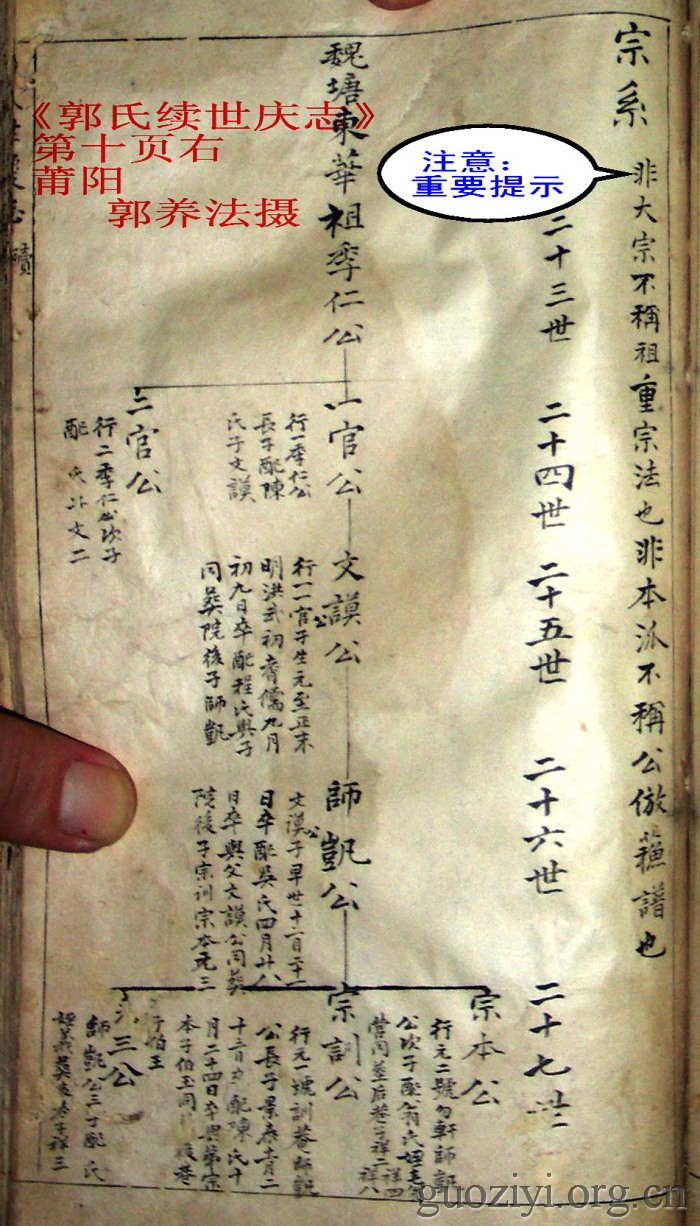 宗系
非大宗不稱祖重宗法也非本派不稱公倣蘓譜也
二十三世
二十四世
二十五世
二十六世
二十七世
魏塘東華祖季仁公
一官公
行一季仁公
長子配陳
氏子文謨
二官公
行二季仁公次子
配 氏 文二
文謨公
行一一官公子生元至正末
明洪武初 儒九月
初九日卒配程氏與子
同葬院後子師凱
師凱公
文謨公子早世十二月二十一
日卒配吳氏四月廿八
日卒與父文謨公同葬
院後子宗訓宗本元三
宗本公
行元二號勿軒師凱
公次子配翁氏
宗訓公
行元一號訓菴師凱
公長子景泰
十三日 配陳氏十
月二十四日卒與弟宗
本子伯玉同
子伯玉
元三公
師凱公三子配 氏
《郭氏续世庆志》
第十页右
莆阳
郭养法摄
注意：
重要提示
續
guoziyi.org.cn